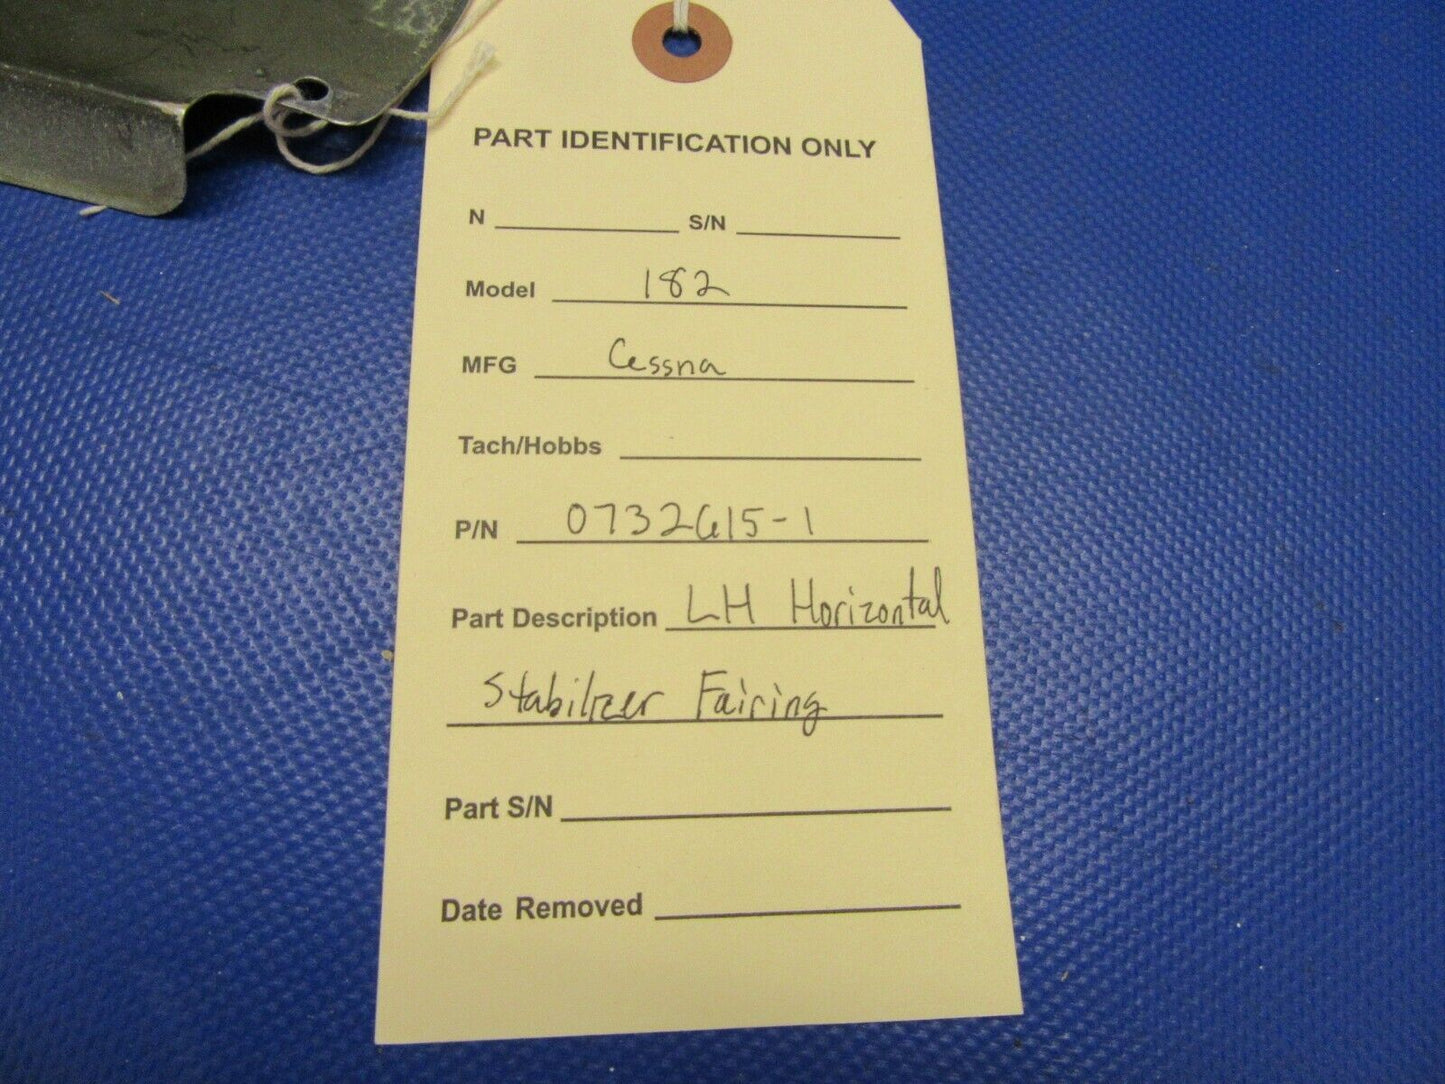 PART IDENTIFICATION ONLY
N S/N
Model 182
MFG Cessna
Tach/Hobbs
P/N 0732615-1
Part Description LH Horizontal
Stabilizer Fairing
Part S/N
Date Removed